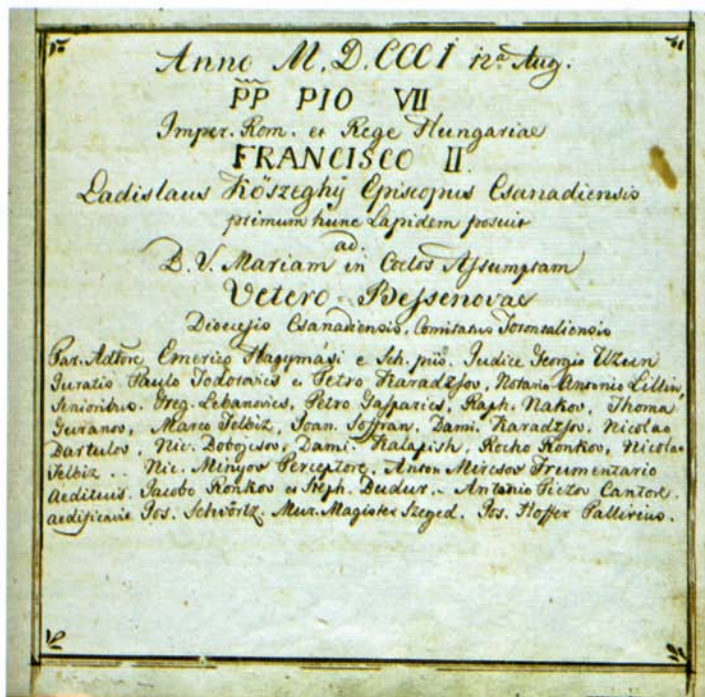 Anno M.D.CCCI 12ª Aug.
PP PIO VII
Imper. Rom. et Rege Hungariae
FRANCISCO II.
Ladislaus Kőszeghÿ Episcopus Csanadiensis
primum hunc Lapidem posuit
ad.
B.V. Mariam in Coelos Assumptam
Vetero-Bessenovae
Diocesis Csanadiensis, Comitatus Torontaliensis
Par. Adtore Emerico Hagymási e Sch. piis. Judice Georgio Uzun
Juratis Paulo Todorovics e Petro Karadzsov, Notario Antonio Lillin,
Senioribus. Greg. Lebanovics, Petro Gasparics, Raph. Nakov, Thoma
Guranov, Marco Telbiz, Joan. Soffran, Dami. Karadzsov, Nicolao
Bartulov, Nic. Dobojcsov, Dami. Kalapish, Rocho Ronkov, Nicolao
Telbiz .. Nic. Minyov Perceptore, Anton Mircsov Frumentario
Aedituis. Jacobo Ronkov et Steph. Dudur. - Antonio Cantore.
aedificavit Jos. Schvörtz. Mur. Magister Szeged. Jos. Hoffer Pallirius.